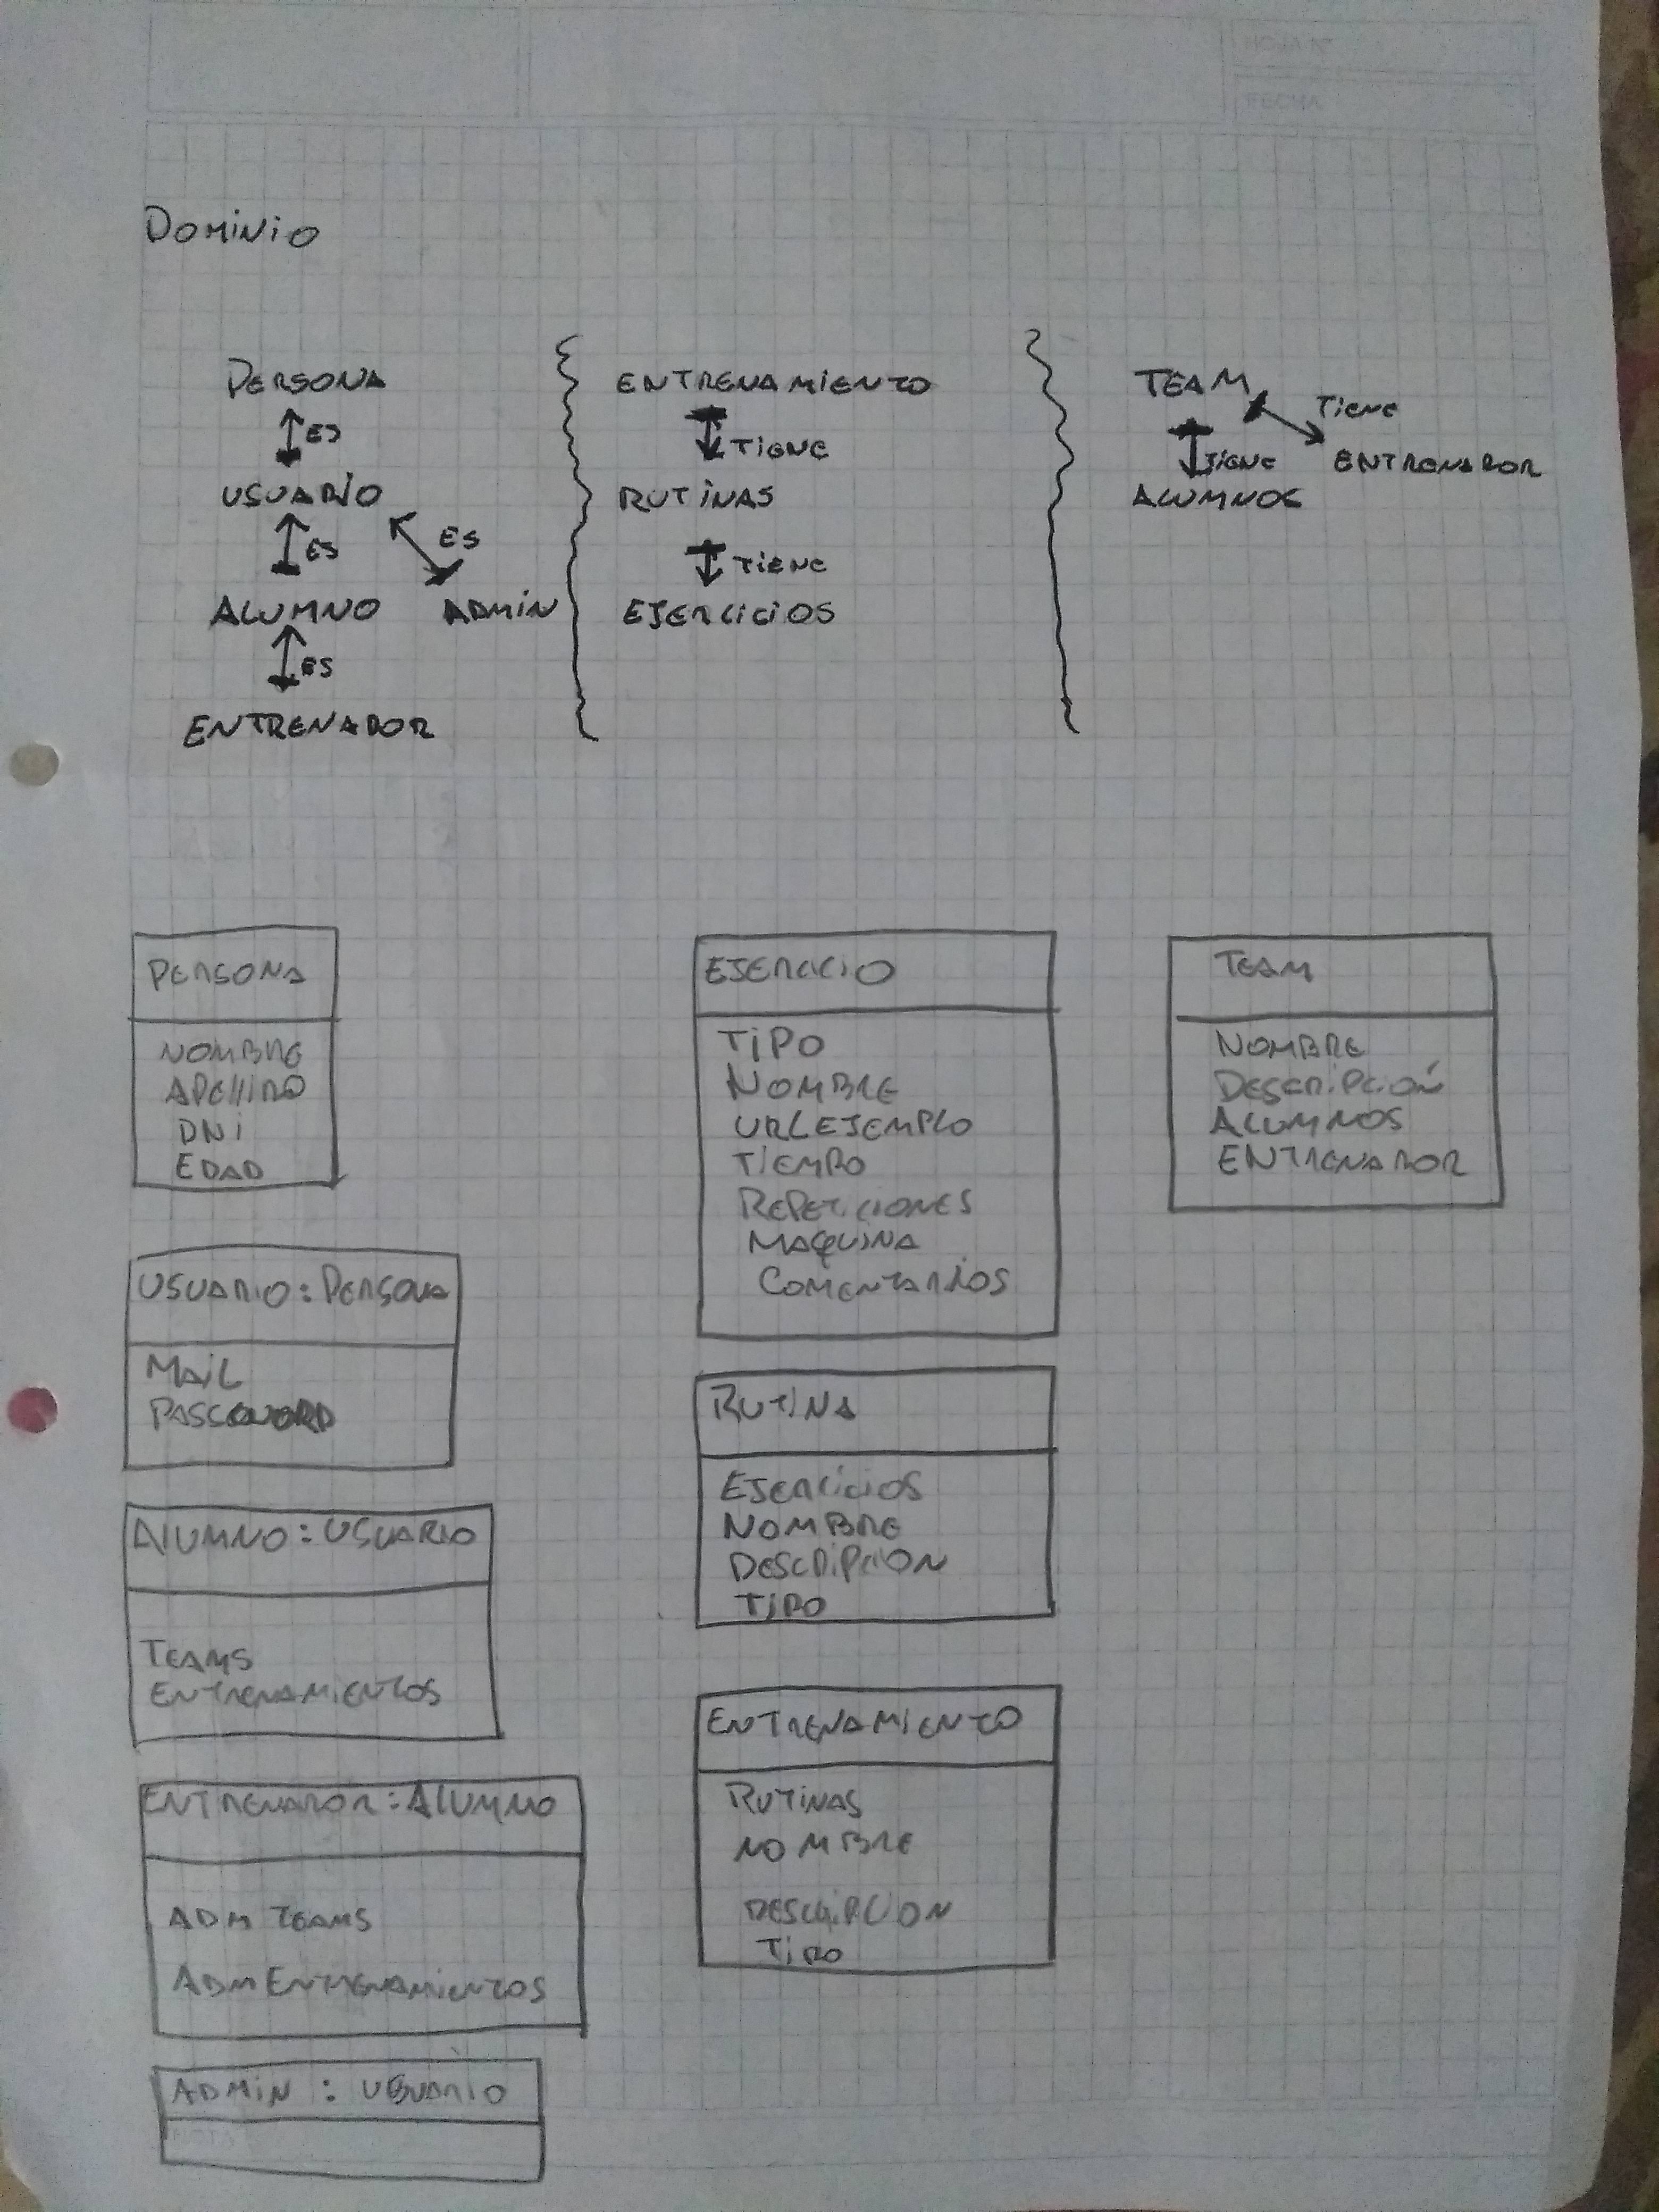 HOJA Nº
FECHA
DOMINIO
PERSONA
ES
USUARIO
ES
ES
ALUMNO ADMIN
ES
ENTRENADOR
ENTRENAMIENTO
TIENE
RUTINAS
TIENE
EJERCICIOS
TEAM
TIENE
TIENE
ENTRENADOR
ALUMNOS
PERSONA
NOMBRE
APELLIDO
DNI
EDAD
USUARIO: PERSONA
MAIL
PASSWORD
ALUMNO: USUARIO
TEAMS
ENTRENAMIENTOS
ENTRENADOR: ALUMNO
ADM TEAMS
ADM ENTRENAMIENTOS
ADMIN : USUARIO
NOTA
EJERCICIO
TIPO
NOMBRE
URLEJEMPLO
TIEMPO
REPETICIONES
MAQUINA
COMENTARIOS
RUTINA
EJERCICIOS
NOMBRE
DESCRIPCION
TIPO
ENTRENAMIENTO
RUTINAS
NOMBRE
DESCRIPCION
TIPO
TEAM
NOMBRE
DESCRIPCIÓN
ALUMNOS
ENTRENADOR